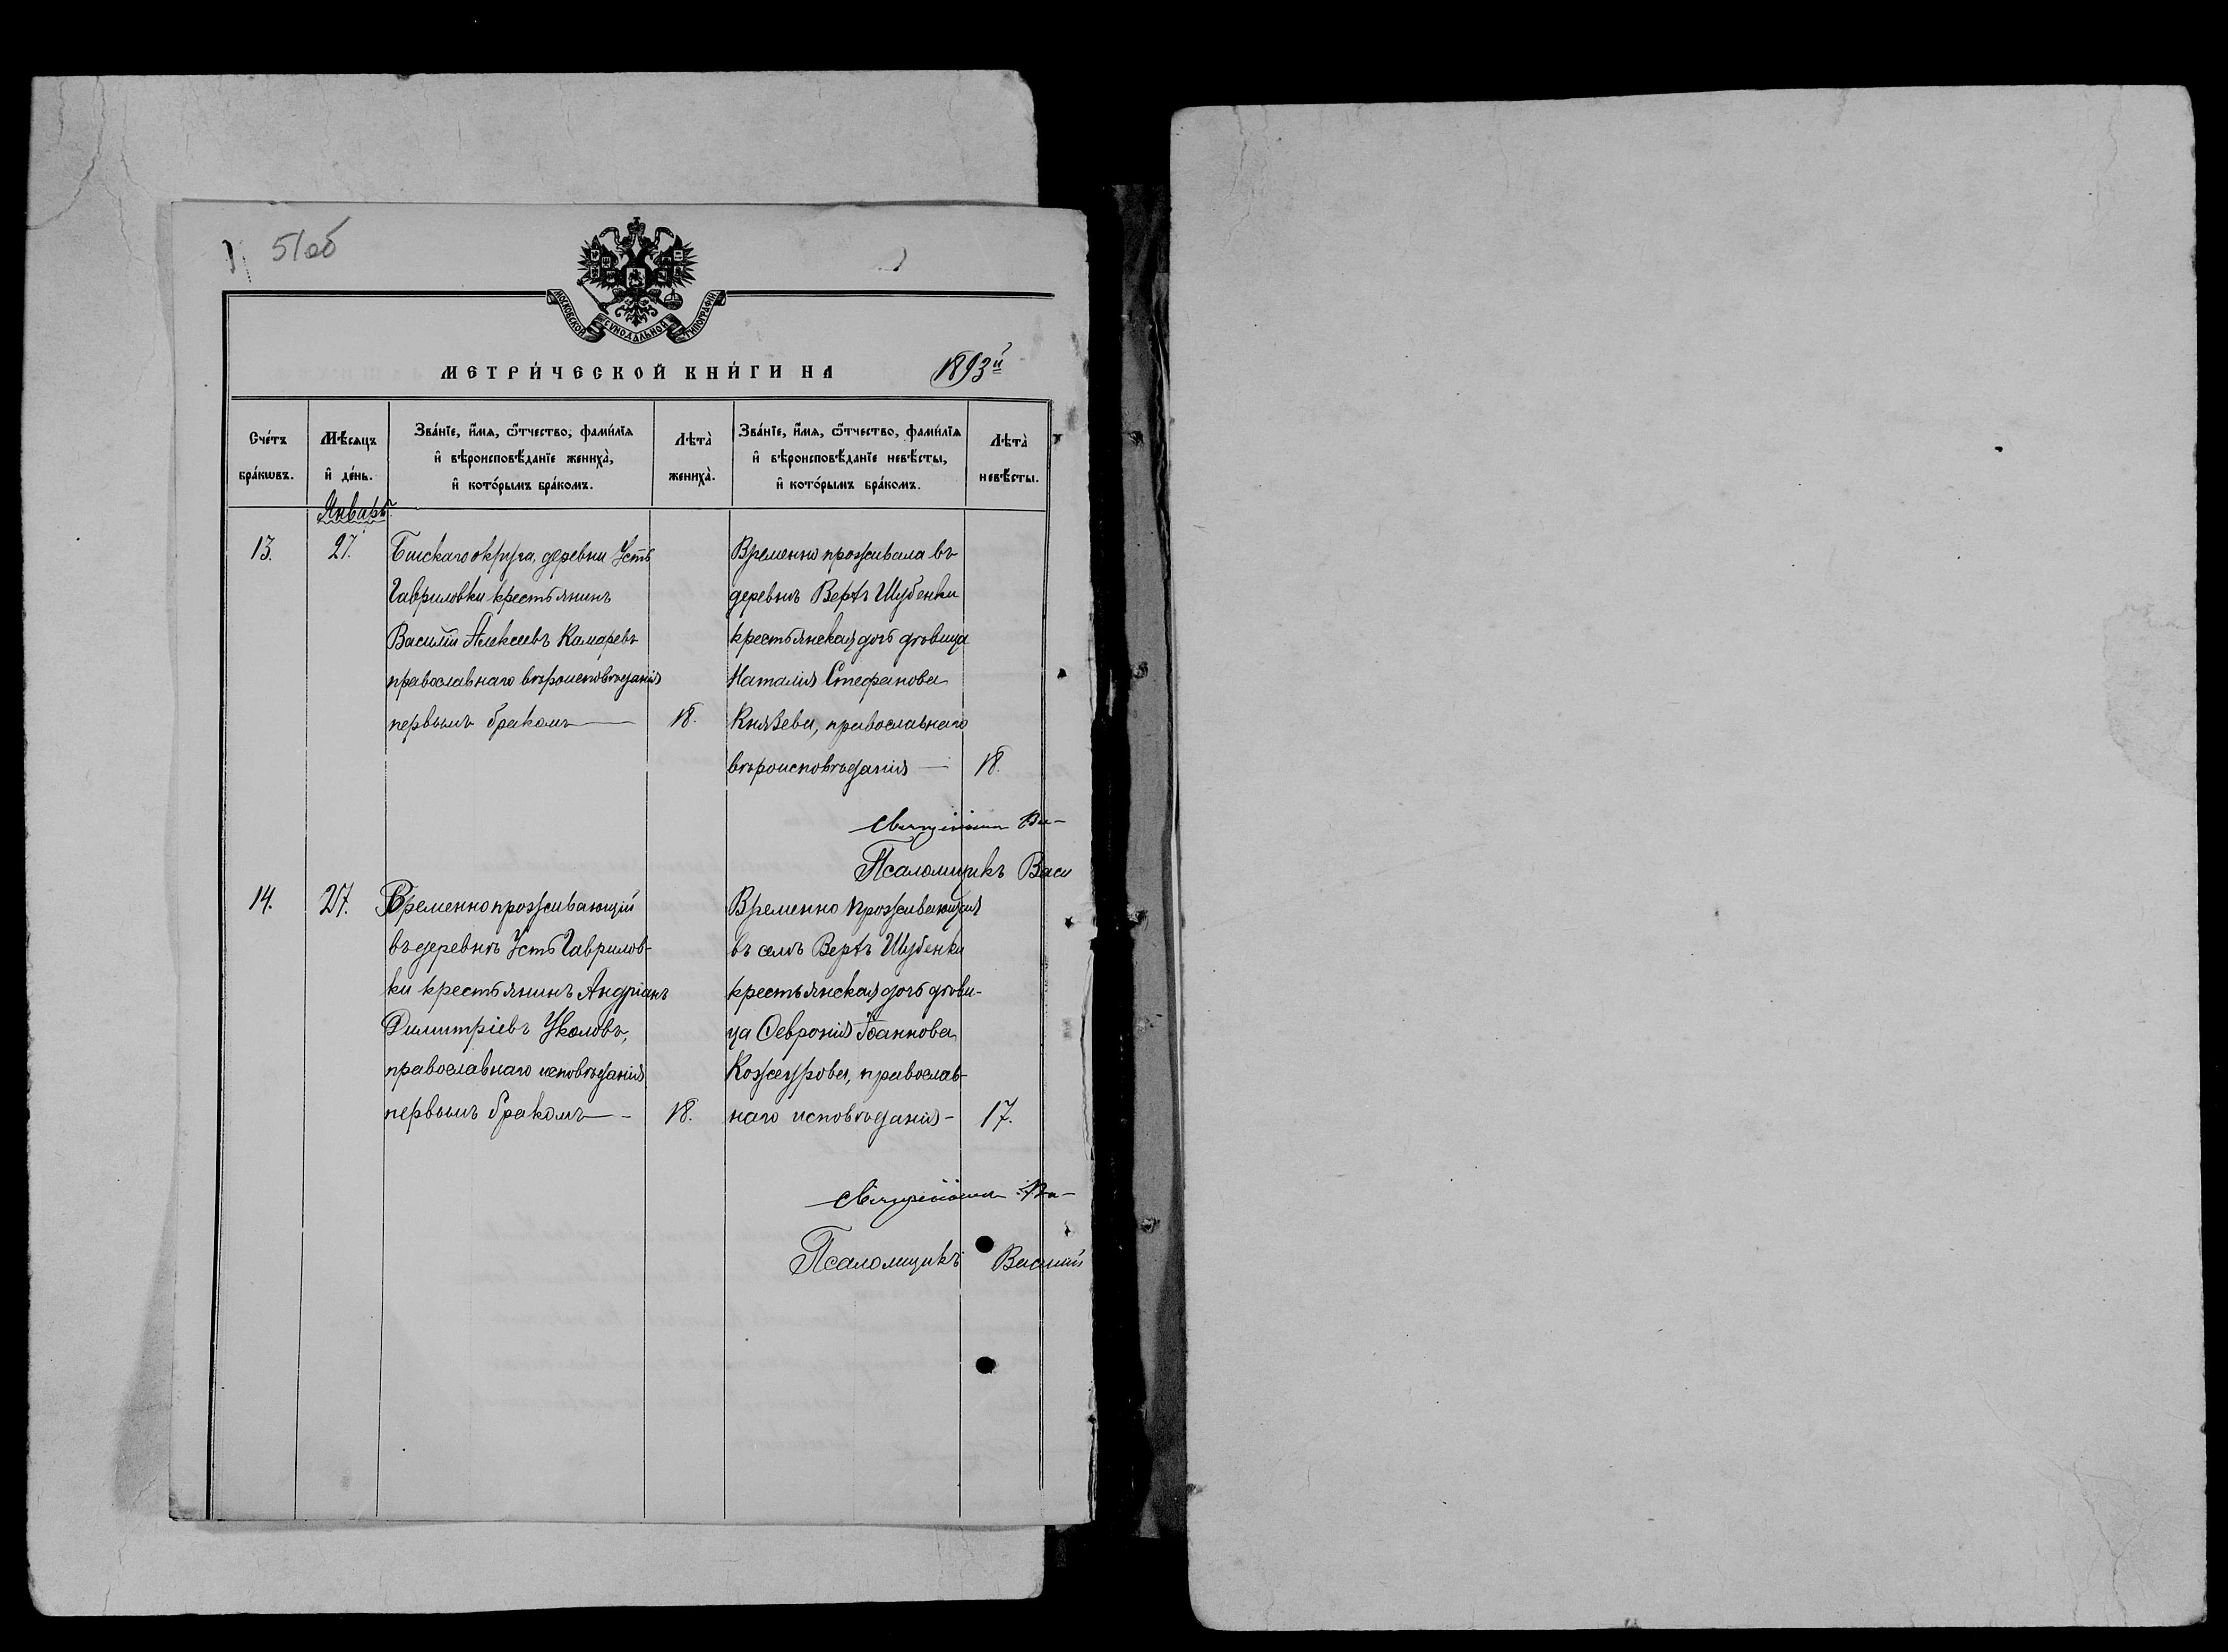 51об
МОСКОВСКОЙ СУНОДАЛЬНОЙ ТИПОГРАФІИ
МЕТРИ́ЧЕСКОЙ КНИ́ГИ НА 1893й
Сче́тъ бра́кѡвъ.
Мѣ́сяцъ и҆ де́нь.
Зва́нїе, и҆́мѧ, ѻ҆́тчество, фамилїѧ
и҆ вѣроисповѣ́данїе жениха̀,
и҆ кото́рымъ бра́комъ.
Лѣта̀ жениха̀.
Зва́нїе, и҆́мѧ, ѻ҆́тчество, фамилїѧ
и҆ вѣроисповѣ́данїе невѣ́сты,
и҆ кото́рымъ бра́комъ.
Лѣта̀ невѣ́сты.
Январь
13.
27.
Бискаго округа, деревни Усть
Гавриловки крестьянинъ
Василій Алексеевъ Камаревъ
православнаго вѣроисповѣданія
первымъ бракомъ —
18.
Временно проживала въ
деревнѣ Верхъ Шубенки
крестьянская дочь дѣвица
Наталія Стефанова
Князева, православнаго
вѣроисповѣданія —
18.
Священникъ Ва-
Псаломщикъ Васи
14.
27.
Временно проживающій
въ деревнѣ Усть Гаврилов-
ки крестьянинъ Андріанъ
Димитріевъ Уколовъ,
православнаго исповѣданія
первымъ бракомъ —
18.
Временно проживающая
въ селѣ Верхъ Шубенки
крестьянская дочь дѣви-
ца Февронія Іоаннова
Кожеурова, православ-
наго исповѣданія -
17.
Священникъ Ва-
Псаломщикъ Василій